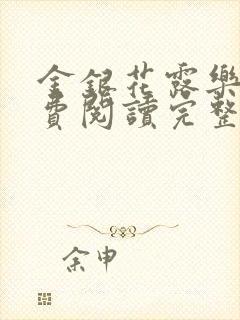 金銀花露樂
費閱讀完整
余申